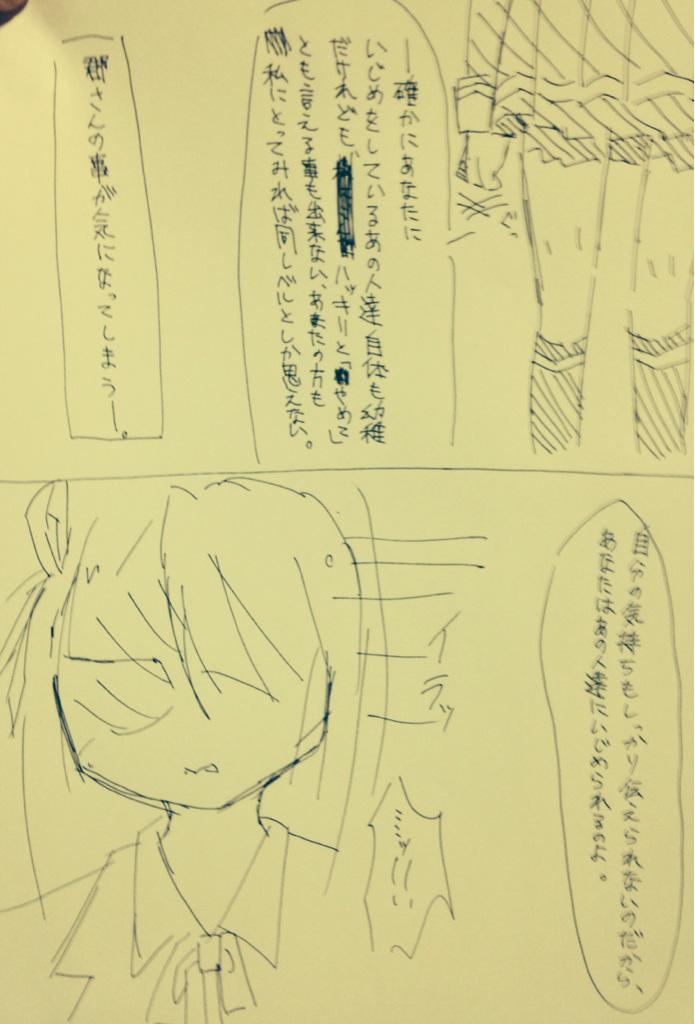 ―確かにあなたに
いじめをしているあの人達自体も幼稚
だけれども ハッキリと「やめて」
とも言える事も出来ない、あなたの方も
私にとってみれば同レベルとしか思えない。
さんの事が気になってしまう―。
ぐっ
自分の気持ちもしっかり伝えられないのだから、
あなたはあの人達にいじめられるのよ。
イラッ
…ミッ!!